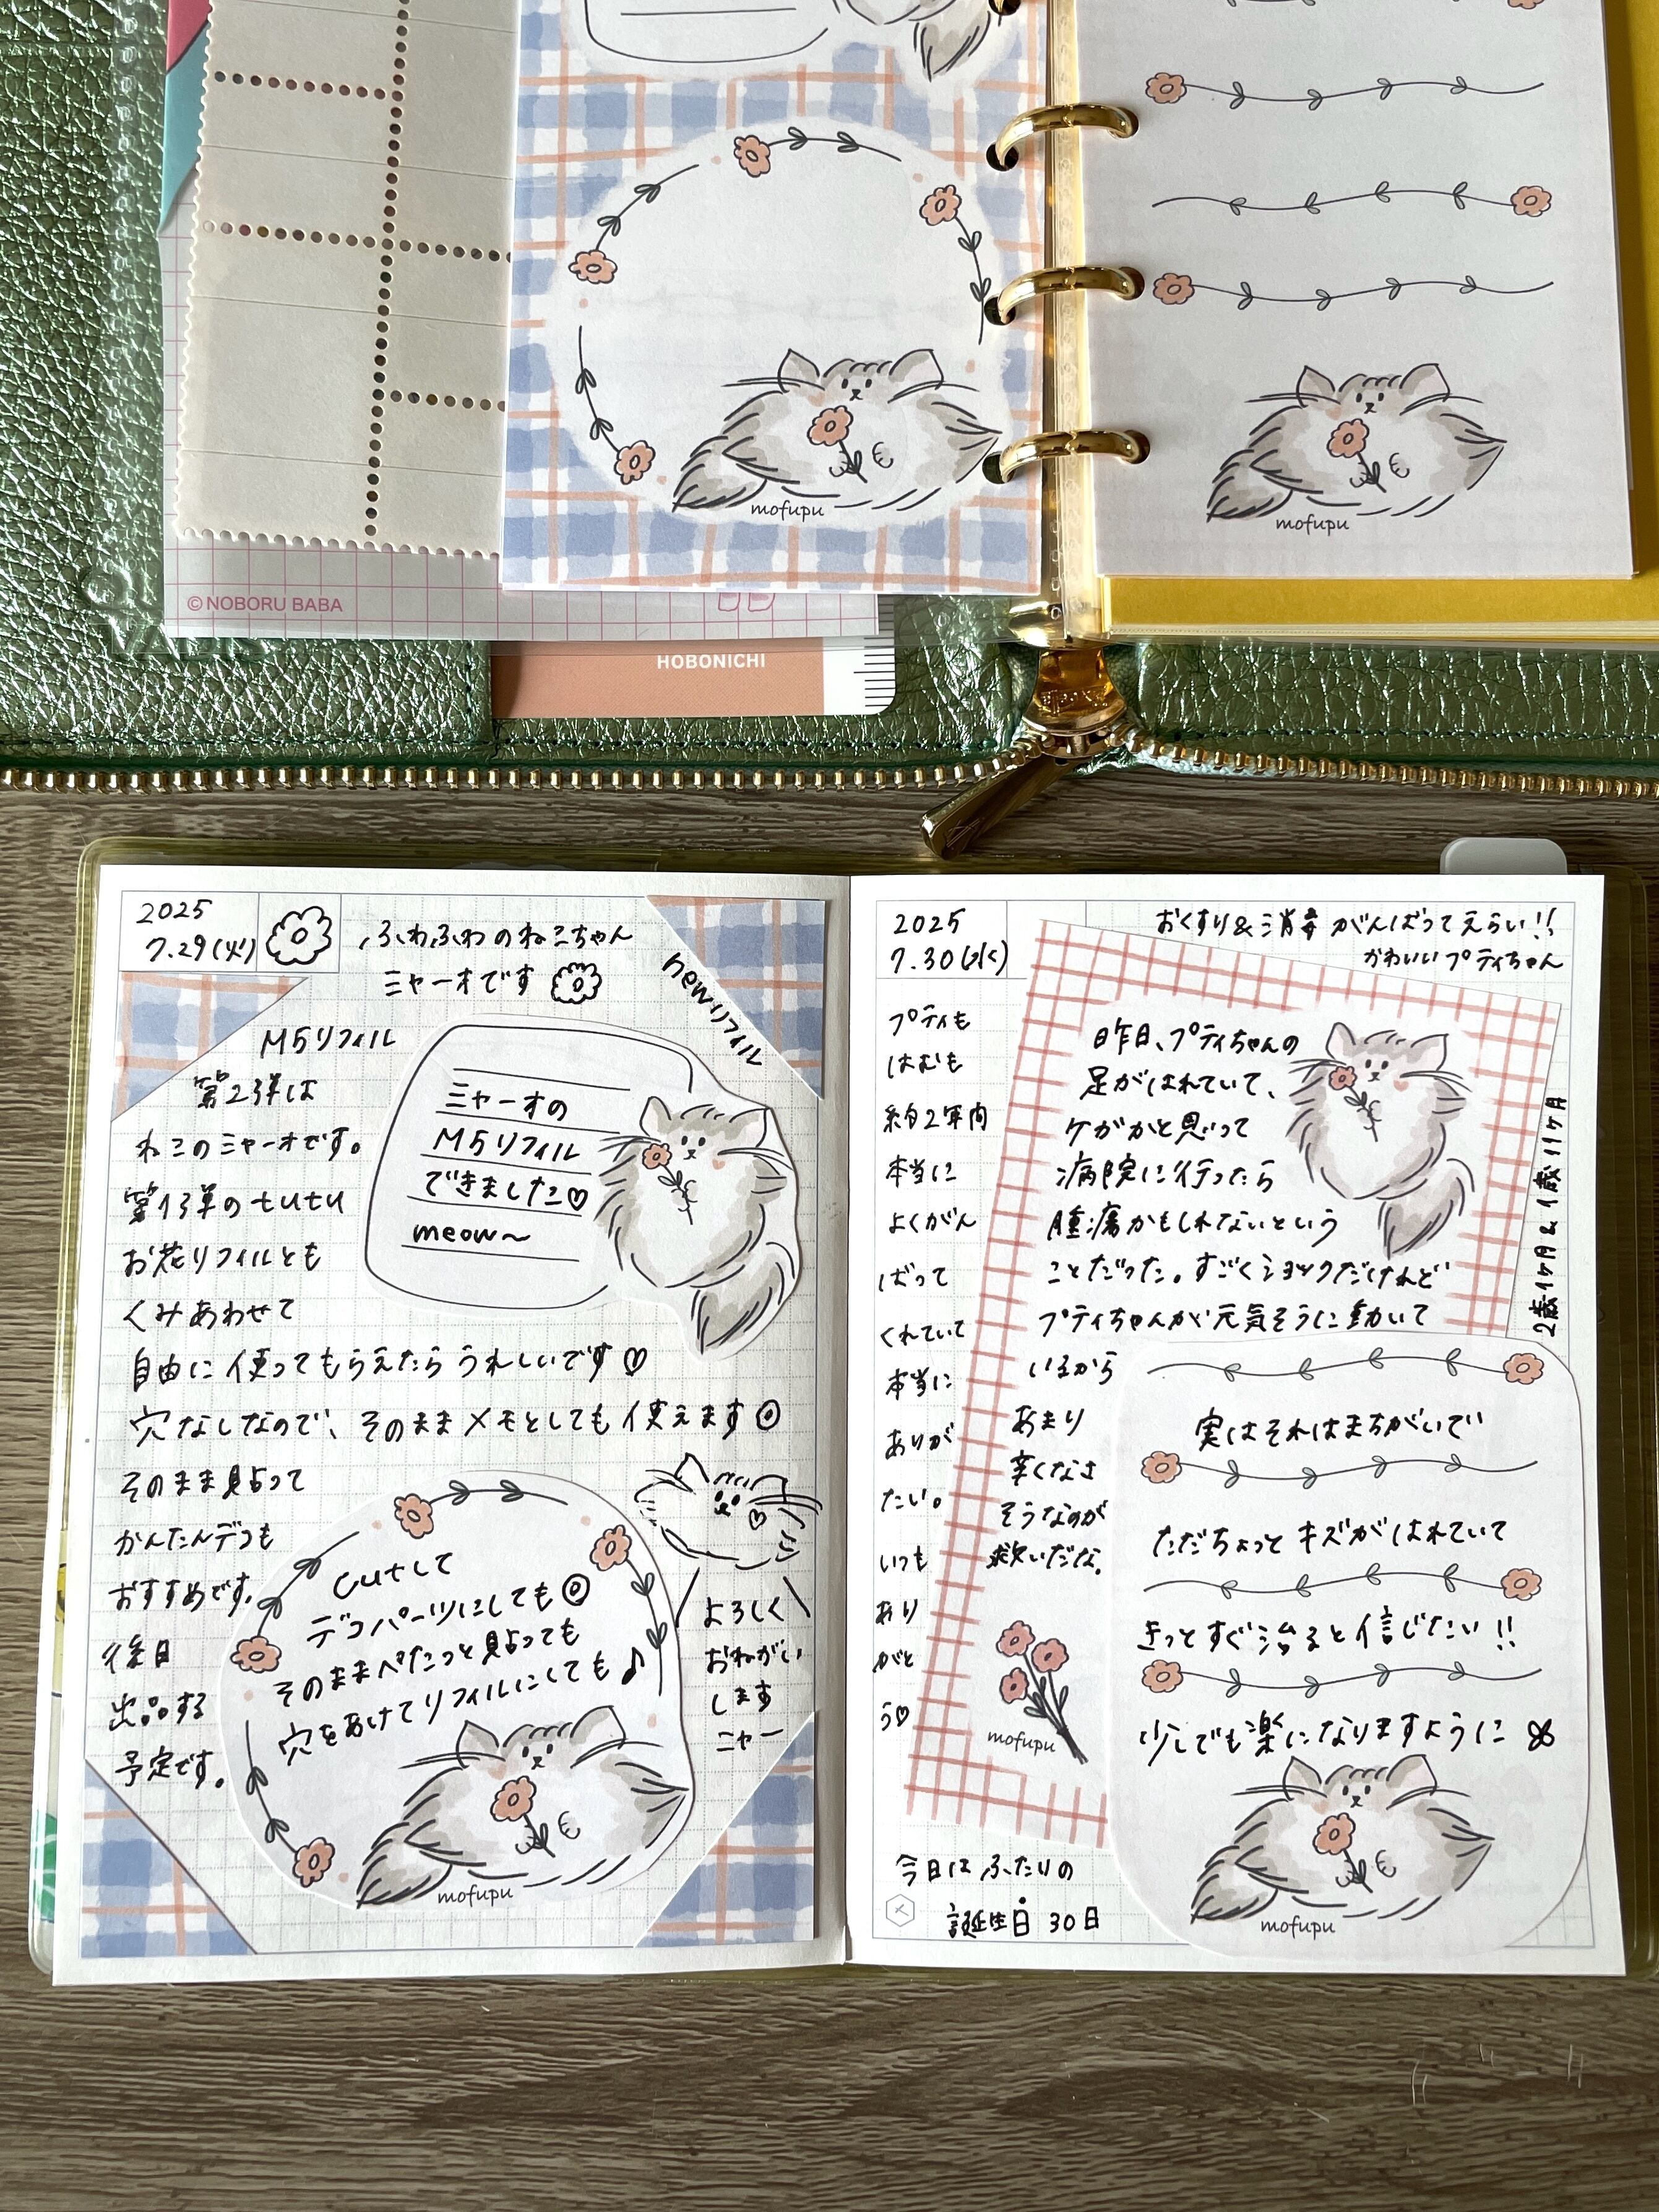 mofupu
mofupu
© NOBORU BABA
HOBONICHI
2025
7.29(火)
ふわふわのねこちゃん
ミャーオです
newリフィル
M5リフィル
第2弾は
ねこのミャーオです。
第1弾のtutu
お花リフィルとも
くみあわせて
自由に使ってもらえたらうれしいです♡
穴なしなので、そのままメモとしても使えます◎
そのまま貼って
かんたんデコも
おすすめです。
後日
出品する
予定です。
ミャーオの
M5リフィル
できました♡
meow〜
cutして
デコパーツにしても◎
そのままペたっと貼っても
穴をあけてリフィルにしても♪
mofupu
よろしく
おねがい
します
ニャー
2025
7.30(水)
おくすり&消毒がんばってえらい!!
かわいいプティちゃん
プティも
はむも
約2年間
本当に
よくがん
ばって
くれていて
本当に
ありが
たい。
いつも
あり
がと
う♡
昨日、プティちゃんの
足がはれていて、
ケガかと思って
病院に行ったら
腫瘍かもしれないという
ことだった。すごくショックだけれど
プティちゃんが元気そうに動いて
いるから
あまり
辛くなさ
そうなのが
救いだな。
mofupu
2歳1ヶ月&1歳11ヶ月
実はそれはまちがいでい
ただちょっとキズがはれていて
きっとすぐ治ると信じたい!!
少しでも楽になりますように
mofupu
今日はふたりの
誕生日 30日